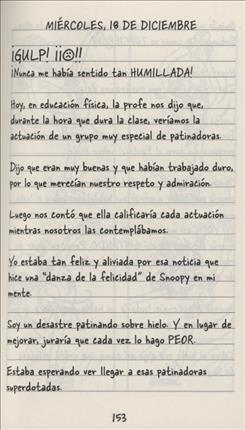 MIÉRCOLES, 18 DE DICIEMBRE
¡GULP! ¡¡☹!!
¡Nunca me había sentido tan HUMILLADA!
Hoy, en educación física, la profe nos dijo que,
durante la hora que dura la clase, veríamos la
actuación de un grupo muy especial de patinadoras.
Dijo que eran muy buenas y que habían trabajado duro,
por lo que merecían nuestro respeto y admiración.
Luego nos contó que ella calificaría cada actuación
mientras nosotros las contemplábamos.
Yo estaba tan feliz y aliviada por esa noticia que
hice una "danza de la felicidad" de Snoopy en mi
mente.
Soy un desastre patinando sobre hielo. Y en lugar de
mejorar, juraría que cada vez lo hago PEOR.
Estaba esperando ver llegar a esas patinadoras
superdotadas.
153